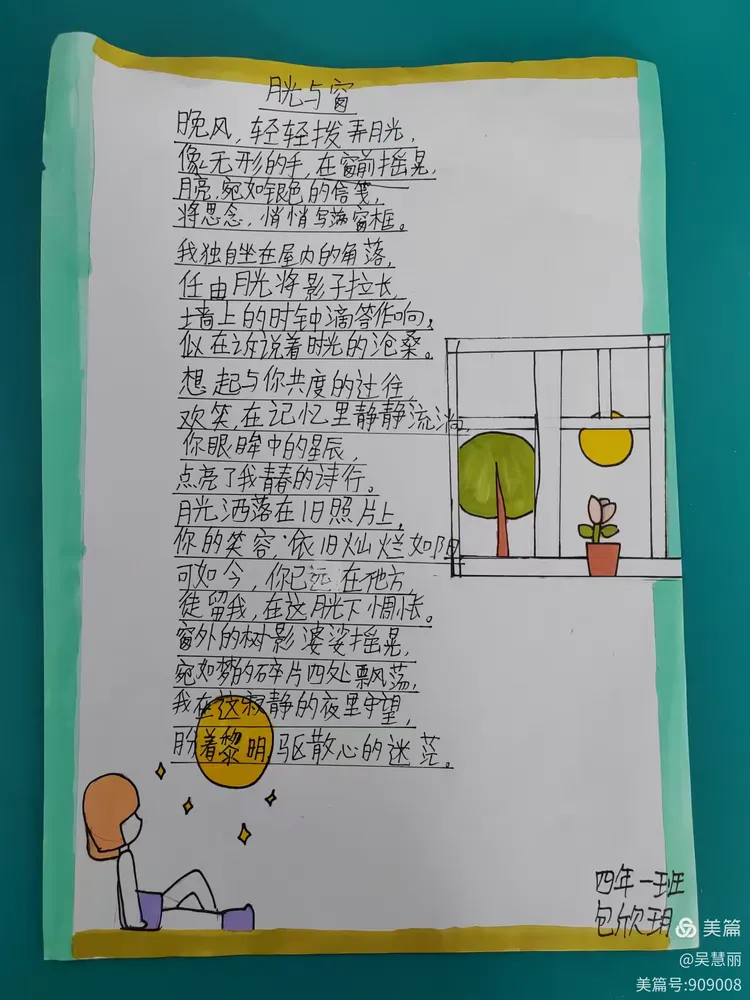 月光与窗
晚风,轻轻拨弄月光,
像无形的手,在窗前摇晃,
月亮,宛如银色的信笺,
将思念,悄悄写满窗框。
我独自坐在屋内的角落,
任由月光将影子拉长,
墙上的时钟滴答作响,
似在诉说着时光的沧桑。
想起与你共度的过往,
欢笑,在记忆里静静流淌,
你眼眸中的星辰,
点亮了我青春的诗行。
月光洒落在旧照片上,
你的笑容,依旧灿烂如阳
可如今,你已远在他方
徒留我,在这月光下惆怅。
窗外的树影婆娑摇晃,
宛如梦的碎片四处飘荡,
我在这寂静的夜里守望,
盼着黎明,驱散心的迷茫。
四年一班
包欣玥
美篇
@吴慧丽
美篇号:909008